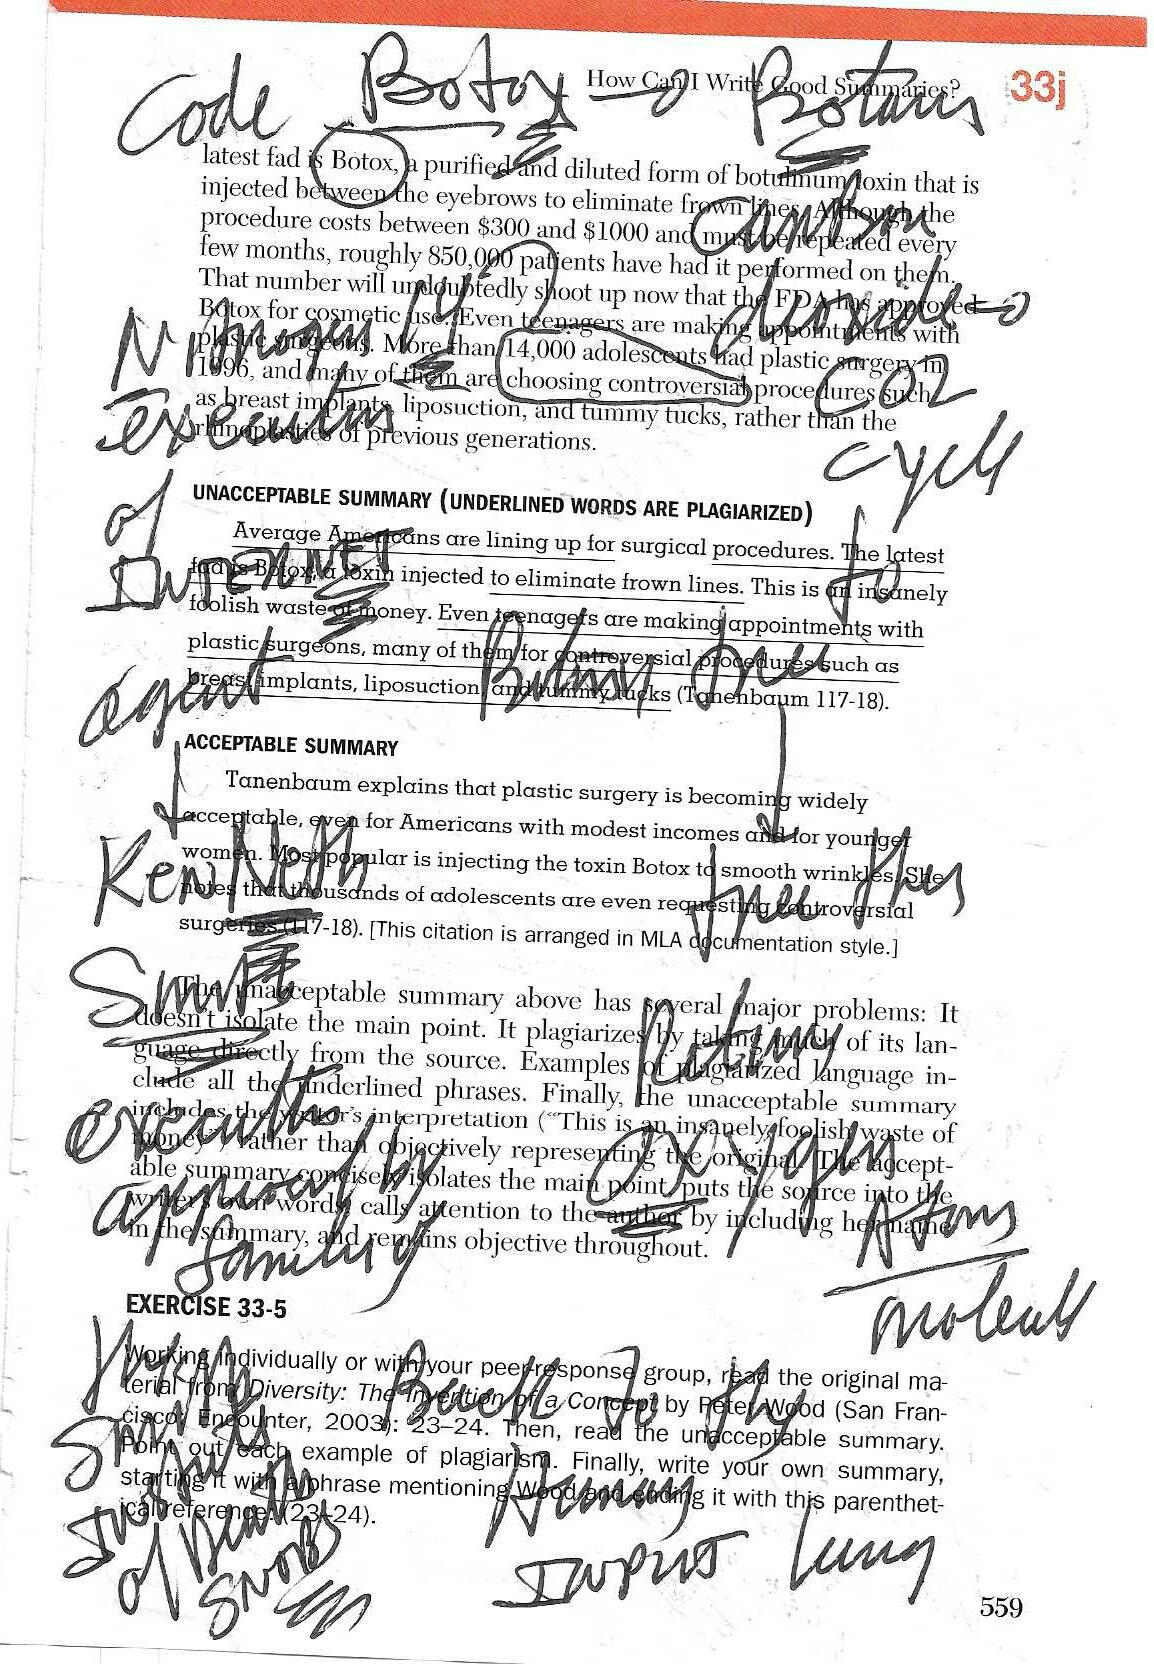 How Can I Write Good Summaries? 33j
Code Botox
latest fad is Botox, a purified and diluted form of botulinum toxin that is
injected between the eyebrows to eliminate frown lines. Although the
procedure costs between $300 and $1000 and must be repeated every
few months, roughly 850,000 patients have had it performed on them.
That number will undoubtedly shoot up now that the FDA has approved
Botox for cosmetic use. Even teenagers are making appointments with
plastic surgeons. More than 14,000 adolescents had plastic surgery in
1996, and many of them are choosing controversial procedures such
as breast implants, liposuction, and tummy tucks, rather than the
rhinoplasties of previous generations.
CO2
cycle
to
of
INTERNET
agent
UNACCEPTABLE SUMMARY (UNDERLINED WORDS ARE PLAGIARIZED)
Average Americans are lining up for surgical procedures. The latest
fad is Botox, a toxin injected to eliminate frown lines. This is an insanely
foolish waste of money. Even teenagers are making appointments with
plastic surgeons, many of them for controversial procedures such as
breast implants, liposuction, and tummy tucks (Tanenbaum 117-18).
ACCEPTABLE SUMMARY
Tanenbaum explains that plastic surgery is becoming widely
acceptable, even for Americans with modest incomes and for younger
women. Most popular is injecting the toxin Botox to smooth wrinkles. She
notes that thousands of adolescents are even requesting controversial
surgeries (117-18). [This citation is arranged in MLA documentation style.]
KenNeth
The unacceptable summary above has several major problems: It
doesn't isolate the main point. It plagiarizes by taking much of its lan-
guage directly from the source. Examples of plagiarized language in-
clude all the underlined phrases. Finally, the unacceptable summary
includes the writer's interpretation ("This is an insanely foolish waste of
money") rather than objectively representing the original. The accept-
able summary concisely isolates the main point, puts the source into the
writer's own words, calls attention to the author by including her name
in the summary, and remains objective throughout.
approved by
family
oxygen
Atoms
EXERCISE 33-5
Working individually or with your peer-response group, read the original ma-
terial from Diversity: The Invention of a Concept by Peter Wood (San Fran-
cisco: Encounter, 2003): 23–24. Then, read the unacceptable summary.
Point out each example of plagiarism. Finally, write your own summary,
starting it with a phrase mentioning Wood and ending it with this parenthet-
ical reference: (23–24).
Back to the
Human
INPUT lung
of Death
SNOBS
559